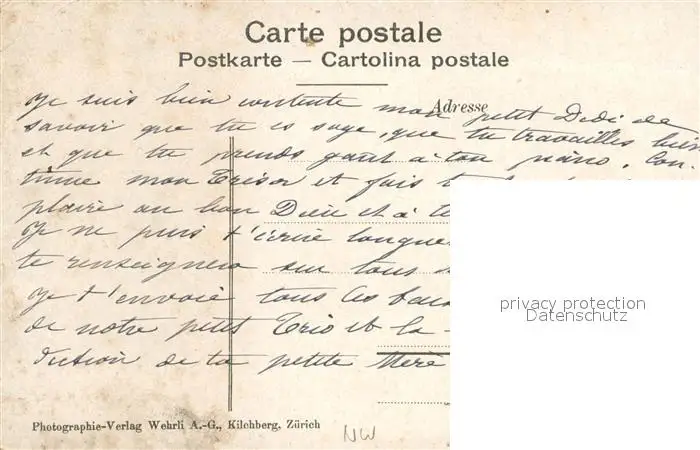 Carte postale
Postkarte — Cartolina postale
Adresse
Je suis bien contente mon petit Dedi de
savoir que tu es sage, que tu travailles bien
et que tu prends goût à ton piano. Con-
tinue mon Trésor et fais
plaire au bon Dieu et à
Je ne puis t'écrire longue
te renseignera sur tous
Je t'envoie tous les
de notre petit Trio et la
diction de ta petite Mère
privacy protection
Datenschutz
Photographie-Verlag Wehrli A.-G., Kilchberg, Zürich
NW